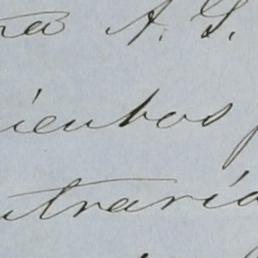 ra A. S.
ientos
ntraria